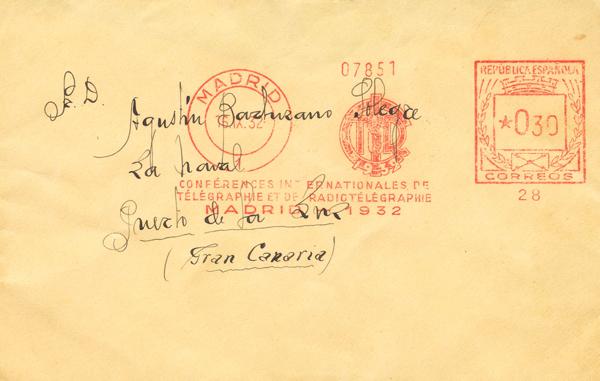 07851
REPÚBLICA ESPAÑOLA
MADRID
IX.32
*030
1932
CORREOS
28
CONFÉRENCES INTERNATIONALES DE
TÉLÉGRAPHIE ET DE RADIOTÉLÉGRAPHIE
MADRID 1932
D.
Agustín
La Naval
Puerto de la Luz
(Gran Canaria)